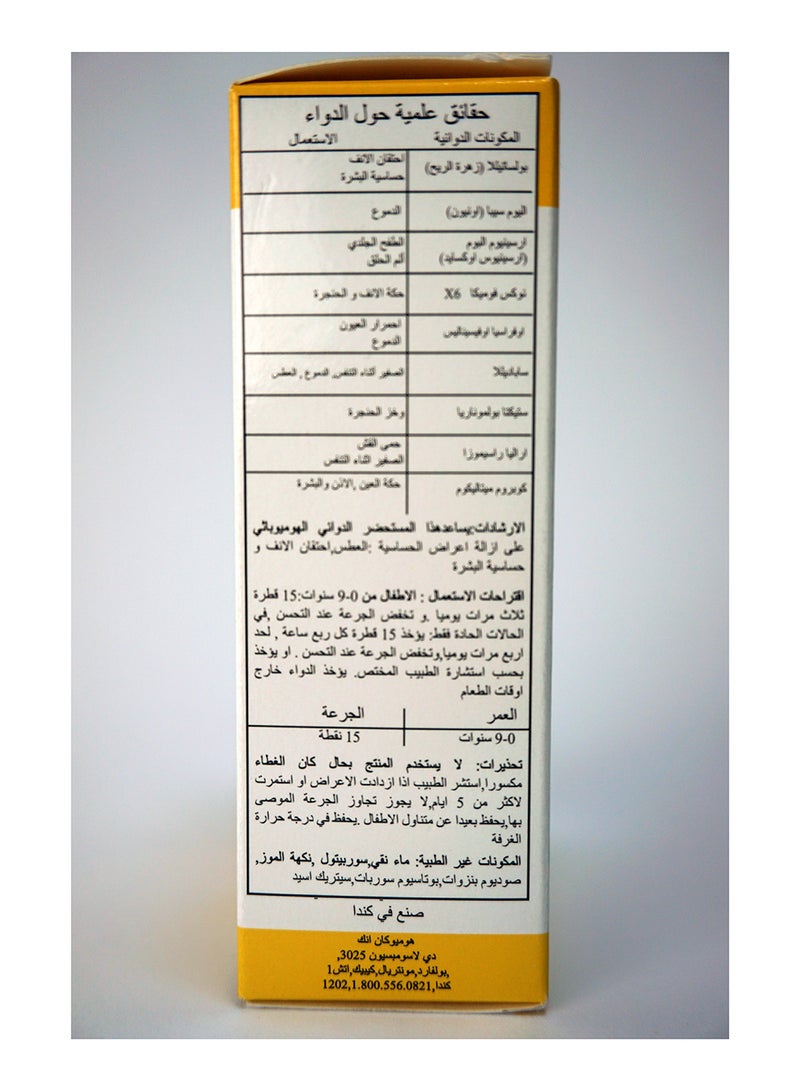 حقائق علمية حول الدواء
المكونات الدوائية الاستعمال
بولساتيللا (زهرة الريح) احتقان الانف
حساسية البشرة
اليوم سيبا (اونيون) الدموع
ارسينيوم اليوم الطفح الجلدي
(ارسينيوس اوكسايد) ألم الحلق
نوكس فوميكا X6 حكة الانف و الحنجرة
اوفراسيا اوفيسيناليس احمرار العيون
الدموع
ساباديللا الصفير أثناء التنفس, الدموع , العطس
ستيكتا بولموناريا وخز الحنجرة
اراليا راسيموزا حمى القش
الصفير اثناء التنفس
كوبروم ميتاليكوم حكة العين ,الاذن والبشرة
الارشادات:يساعدهذا المستحضر الدوائي الهوميوباثي
على ازالة اعراض الحساسية :العطس,احتقان الانف و
حساسية البشرة
اقتراحات الاستعمال : الاطفال من 0-9 سنوات:15 قطرة
ثلاث مرات يوميا .و تخفض الجرعة عند التحسن ,في
الحالات الحادة فقط: يؤخذ 15 قطرة كل ربع ساعة , لحد
اربع مرات يوميا,وتخفض الجرعة عند التحسن . او يؤخذ
بحسب استشارة الطبيب المختص. يؤخذ الدواء خارج
اوقات الطعام
العمر الجرعة
0-9 سنوات 15 نقطة
تحذيرات: لا يستخدم المنتج بحال كان الغطاء
مكسورا,استشر الطبيب اذا ازدادت الاعراض او استمرت
لاكثر من 5 ايام,لا يجوز تجاوز الجرعة الموصى
بها,يحفظ بعيدا عن متناول الاطفال .يحفظ في درجة حرارة
الغرفة
المكونات غير الطبية: ماء نقي,سوربيتول ,نكهة الموز,
صوديوم بنزوات,بوتاسيوم سوربات,سيتريك اسيد
صنع في كندا
هوميوكان انك
دي لاسومبسيون 3025,
بولفارد,مونتريال,كيبيك,اتش1,
كندا,1202,1.800.556.0821